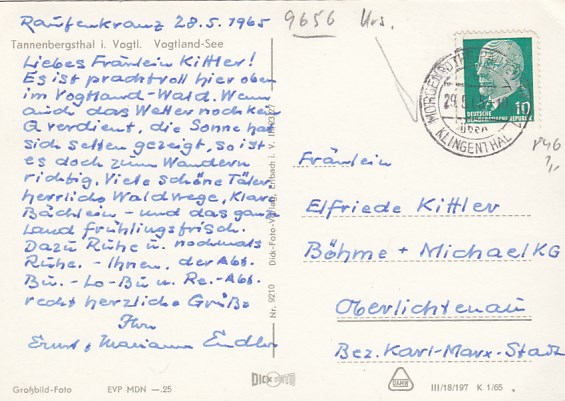 Raufenkranz 28.5.1965
9656 Urs.
Tannenbergsthal i. Vogtl. Vogtland-See
Liebes Fräulein Kittler!
Es ist prachtvoll hier oben
im Vogtland-Wald. Wenn
auch das Wetter noch kein
a verdient, die Sonne hat
sich selten gezeigt, so ist
es doch zum Wandern
richtig. Viele schöne Täler
herrliche Waldwege, Klare
Bächlein - und das ganze
Land frühlingsfrisch.
Dazu Ruhe u. nochmals
Ruhe. - Ihnen, der Abt.
Bu. - Lo-Bu u. Re.-Abt.
recht herzliche Grüße
Ihre
Ernst u. Mariann Endler
Großbild-Foto EVP MDN —.25
Nr. 9210 Dick-Foto-Verlag, Erlbach i. V.
DICK
10
DEUTSCHE DEMOKRATISCHE REPUBLIK
KLINGENTHAL
P46
Fräulein
Elfriede Kittler
Böhme + Michael KG
Oberlichtenau
Bez. Karl-Marx-Stadt
III/18/197 K 1/65